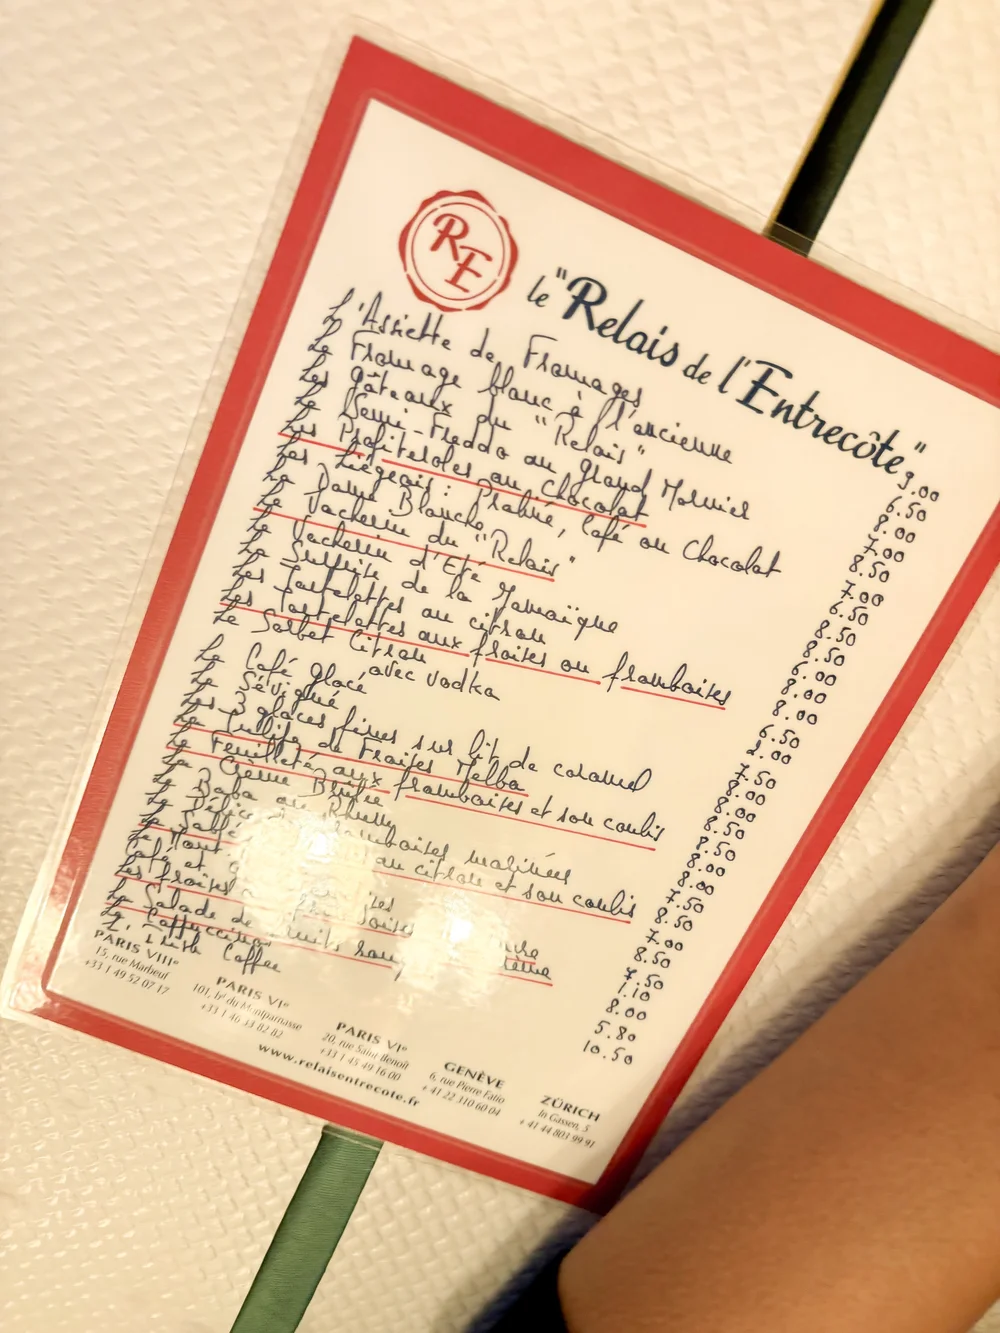 RE
le "Relais de l'Entrecôte"
L'Assiette de Fromages 9.00
Le Fromage blanc à l'ancienne 6.50
Les gâteaux du "Relais" 8.00
Le Semi-Freddo au Grand Marnier 7.00
Les Profiteroles au Chocolat 8.50
Les Liégeois: Praliné, Café ou Chocolat 7.00
La Dame Blanche 6.50
Le Vacherin du "Relais" 8.50
Le Vacherin d'Eté 8.50
La Surprise de la Jamaïque 6.00
Les Tartelettes au citron 8.00
Les Tartelettes aux fraises ou framboises 8.00
Le Sorbet Citron 6.50
avec vodka 2.00
Le Café glacé 7.50
Le Sévigné 8.00
Les 3 glaces fines sur lit de caramel 8.50
La Tulipe de Fraises Melba 8.50
Le Feuilleté aux framboises et son coulis 8.00
La Crème Brûlée 8.00
Le Baba au Rhum 7.50
framboises marinées 8.50
au citron et son coulis 7.00
8.50
Café et 7.50
Les fraises 1.10
La Salade de fruits 8.00
Le Cappuccino 5.80
L'Irish Coffee 10.50
PARIS VIIIe
15, rue Marbeuf
+33 1 49 52 07 17
PARIS VIe
101, bd du Montparnasse
+33 1 46 33 82 82
PARIS VIe
20, rue Saint Benoît
+33 1 45 49 16 00
GENÈVE
6, rue Pierre Fatio
+ 41 22 310 60 04
ZÜRICH
In Gassen, 5
+ 41 44 803 99 91
www.relaisentrecote.fr